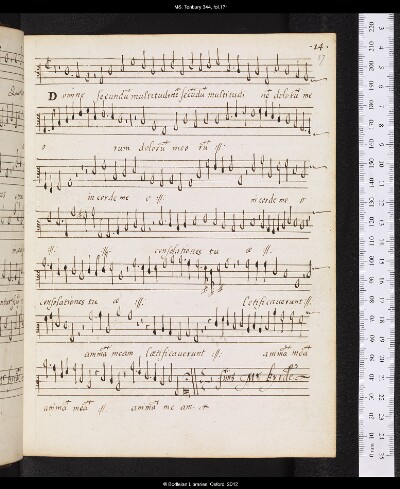 MS. Tenbury 344, fol.17r
·14·
17
Domine secundũ multitudinẽ secũdũ multitudi nẽ dolorũ me
o rum dolorũ meo rũ :||:
in corde me o :||: in corde me o
:||: :||: consolationes tu æ :||:
consolationes tu æ :||: lætificauerunt :||:
ammã meam lætificauerunt :||: ammã meã
finis Mr
ammã meã :||: ammã me am
© Bodleian Libraries, Oxford, 2012